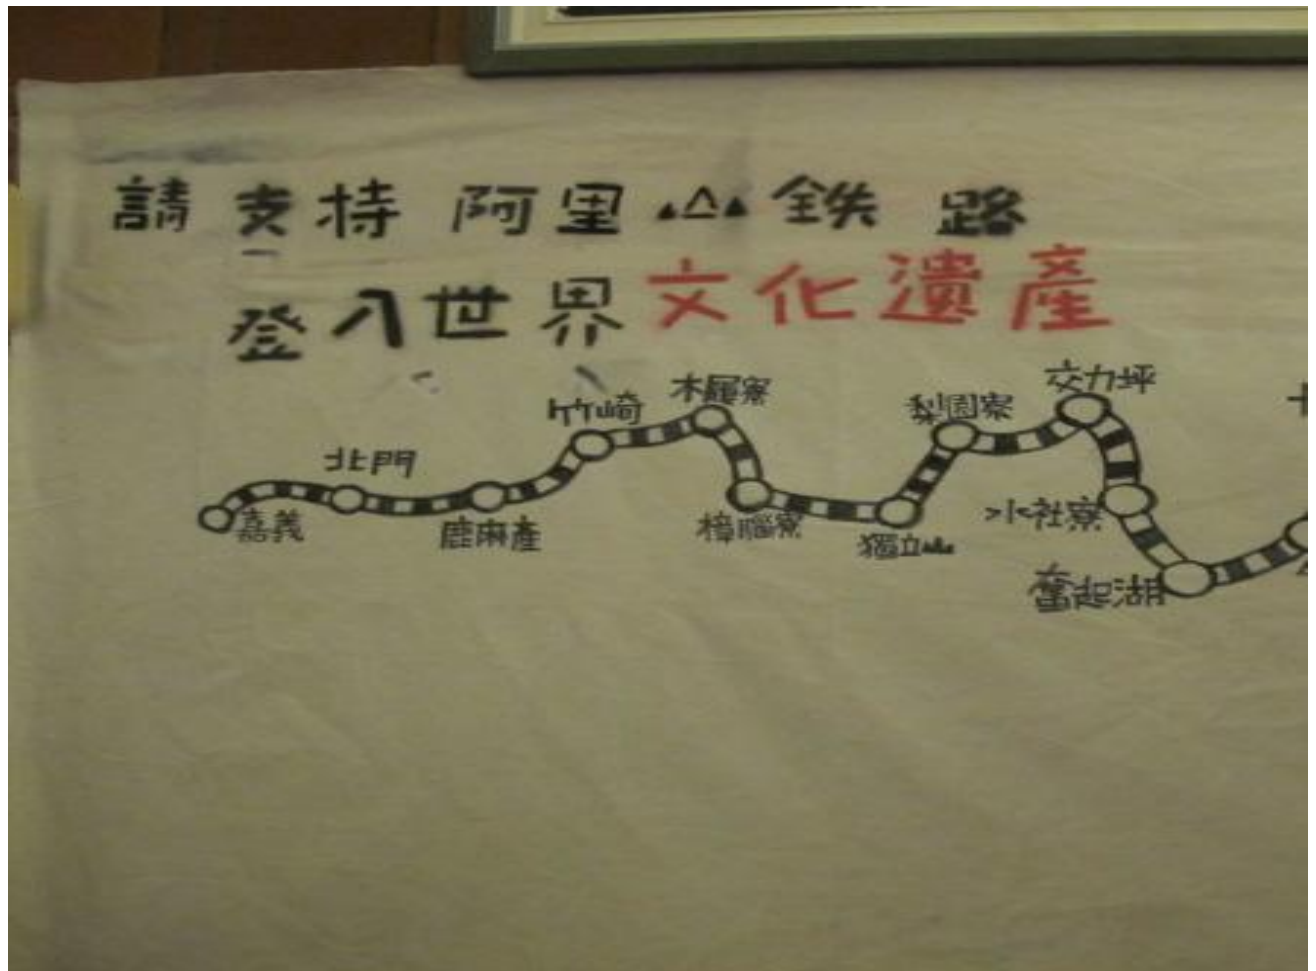 請支持阿里山鉄路
登入世界文化遺產
嘉義
北門
鹿麻產
竹崎
木屐寮
樟腦寮
獨立山
梨園寮
交力坪
水社寮
奮起湖